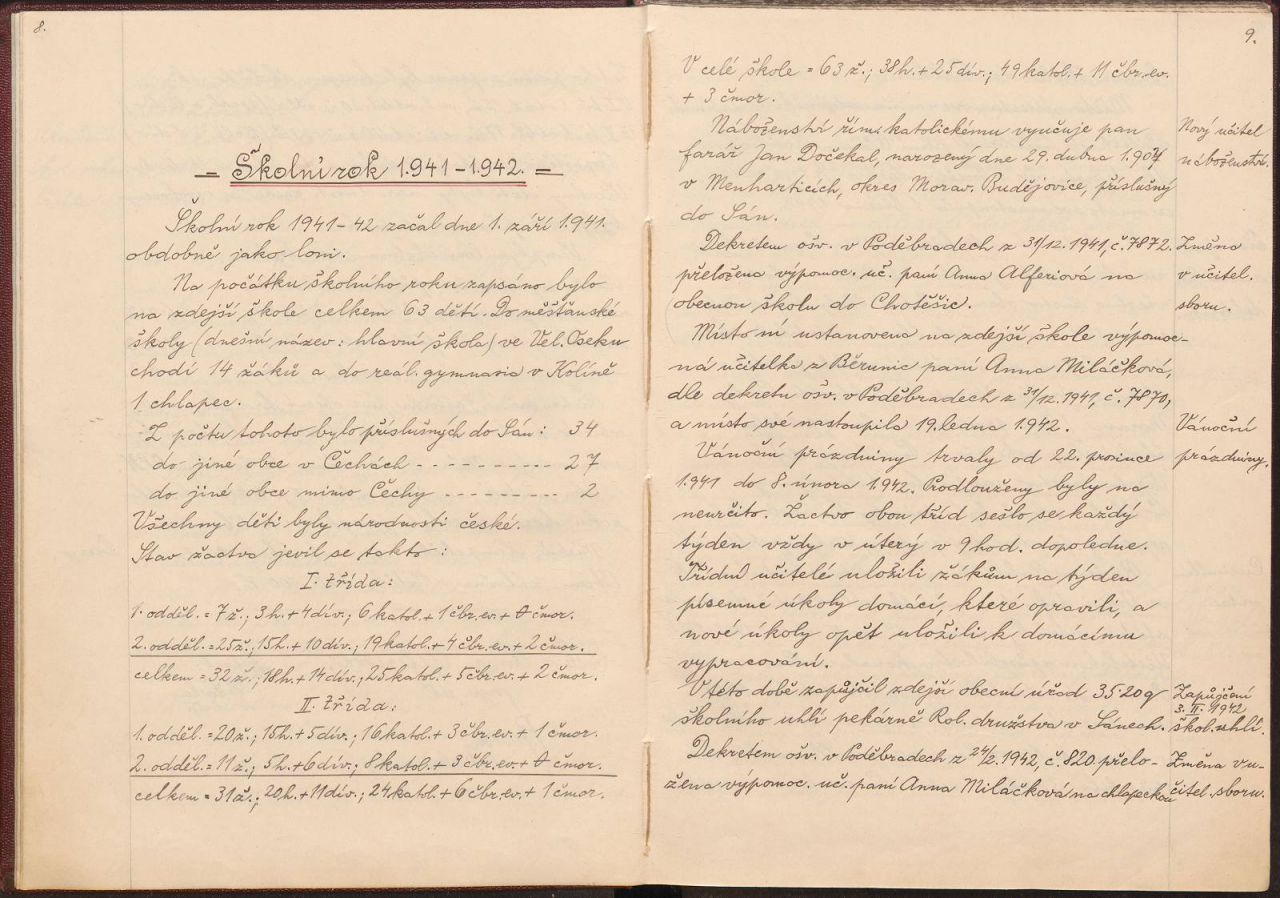 8.
Školní rok 1941-1942.
Školní rok 1941-42 začal dne 1. září 1941.
obdobně jako loni.
Na počátku školního roku zapsáno bylo
na zdejší škole celkem 63 dětí. Do měšťanské
školy (dnešní název: hlavní škola) ve Vel. Oseku
chodí 14 žáků a do reál. gymnasia v Kolíně
1 chlapec.
Z počtu tohoto bylo příslušných do Sán: 34
do jiné obce v Čechách - - - - - - - - - - 27
do jiné obce mimo Čechy - - - - - - - - 2
Všechny děti byly národnosti české.
Stav žactva jevil se takto:
I. třída:
1. odděl. = 7 ž.; 3 h. + 4 dív.; 6 katol. + 1 čbr. ev. + 0 čmor.
2. odděl. = 25 ž., 15 h. + 10 dív.; 19 katol. + 4 čbr. ev. + 2 čmor.
celkem = 32 ž.; 18 h. + 14 dív.; 25 katol. + 5 čbr. ev. + 2 čmor.
II. třída:
1. odděl. = 20 ž.; 15 h. + 5 dív.; 16 katol. + 3 čbr. ev. + 1 čmor.
2. odděl. = 11 ž.; 5 h. + 6 dív.; 8 katol. + 3 čbr. ev. + 0 čmor.
celkem = 31 ž.; 20 h. + 11 dív.; 24 katol. + 6 čbr. ev. + 1 čmor.
9.
V celé škole = 63 ž.; 38 h. + 25 dív.; 49 katol. + 11 čbr. ev.
+ 3 čmor.
Náboženství řím. katolickému vyučuje pan
farář Jan Dočekal, narozený dne 29. dubna 1907
v Menharticích, okres Morav. Budějovice, příslušný
do Sán.
Nový učitel
náboženství.
Dekretem ošv. v Poděbradech z 31/12. 1941, č. 7872.
přeložena výpomoc. uč. paní Anna Alferiová na
obecnou školu do Chotěšic.
Změna
v učitel.
sboru.
Místo ní ustanovena na zdejší škole výpomoc-
ná učitelka z Běrunic paní Anna Miláčková,
dle dekretu ošv. v Poděbradech z 31/12. 1941, č. 7870,
a místo své nastoupila 19. ledna 1942.
Vánoční prázdniny trvaly od 22. prosince
1941 do 8. února 1942. Prodlouženy byly na
neurčito. Žactvo obou tříd sešlo se každý
týden vždy v úterý v 9 hod. dopoledne.
Třídní učitelé uložili žákům na týden
písemné úkoly domácí, které opravili, a
nové úkoly opět uložili k domácímu
vypracování.
Vánoční
prázdniny.
V této době zapůjčil zdejší obecní úřad 35·20 q
školního uhlí pekárně Rol. družstva v Sánech.
Zapůjčení
3. II. 1942
škol. uhlí.
Dekretem ošv. v Poděbradech z 24/2. 1942, č. 820 přelo-
žena výpomoc. uč. paní Anna Miláčková na chlapeckou
Změna v u-
čitel. sboru.